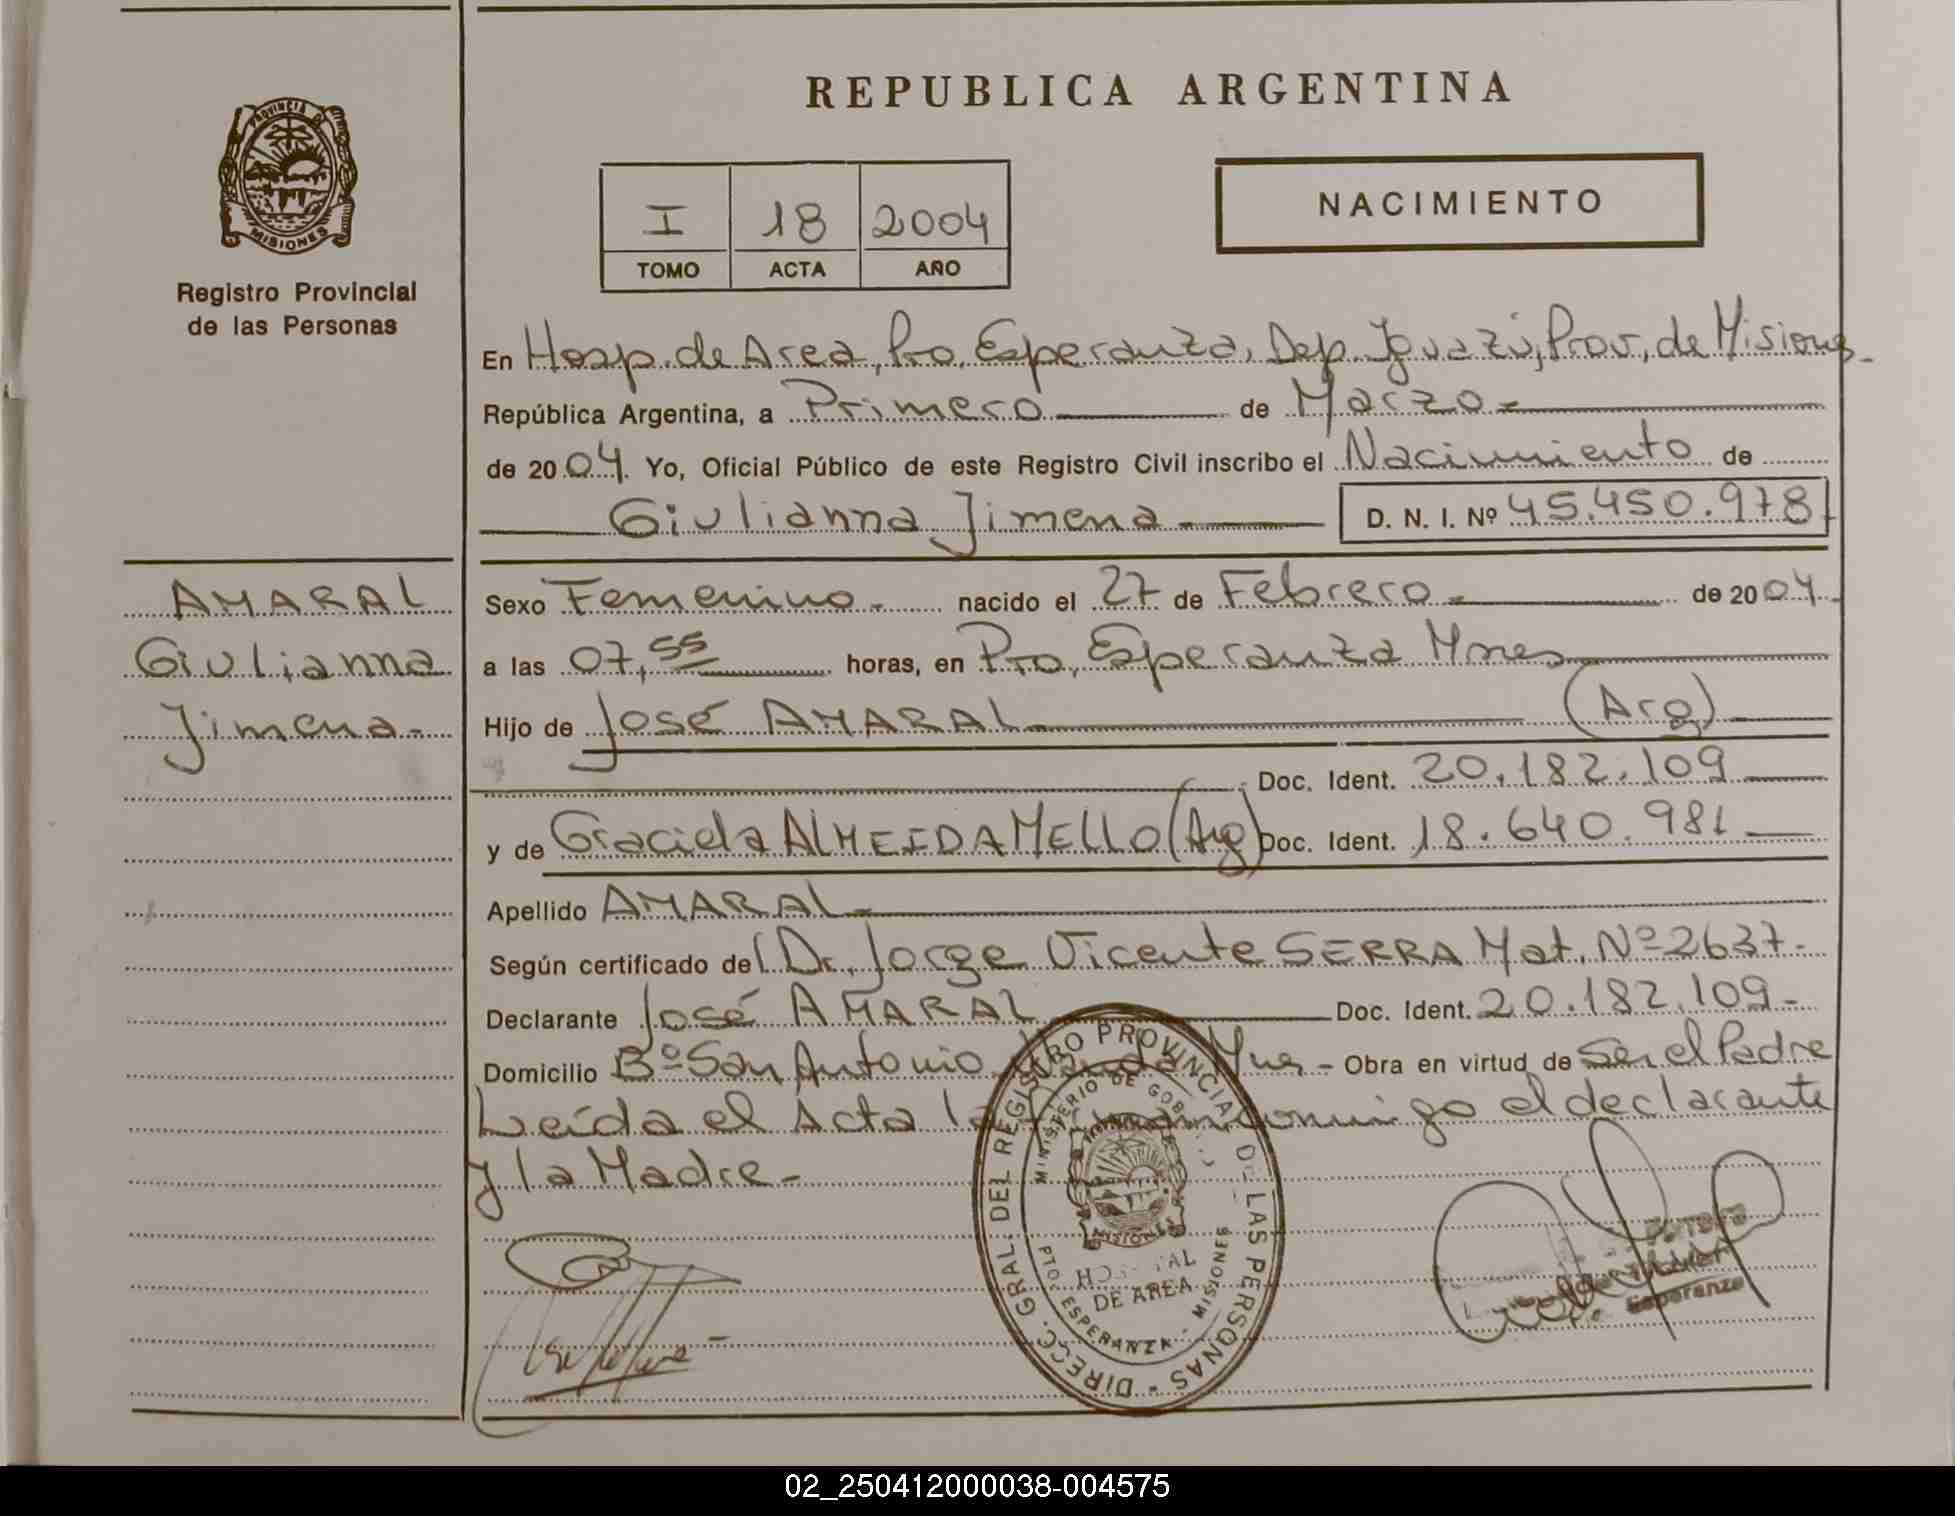 REPUBLICA ARGENTINA
PROVINCIA DE
MISIONES
Registro Provincial
de las Personas
I 18 2004
TOMO ACTA AÑO
NACIMIENTO
En Hosp. de Area, Pto. Esperanza, Dep. Iguazú, Prov, de Misiones-
República Argentina, a Primero de Marzo-
de 2004. Yo, Oficial Público de este Registro Civil inscribo el Nacimiento de
Giulianna Jimena- D. N. I. Nº 45.450.978
AMARAL
Giulianna
Jimena-
Sexo Femenino- nacido el 27 de Febrero- de 2004-
a las 07,55 horas, en Pto, Esperanza Mnes
Hijo de José AMARAL (Arg)
Doc. Ident. 20.182.109
y de Graciela ALMEIDA MELLO (Arg) Doc. Ident. 18.640.981
Apellido AMARAL-
Según certificado del Dr. Jorge Vicente SERRA Mat. Nº 2637-
Declarante José AMARAL Doc. Ident. 20.182.109-
Domicilio Bº San Antonio Mnes- Obra en virtud de Ser el Padre
Leída el Acta la conmigo el declarante
y la Madre-
DIRECC. GRAL. DEL REGISTRO PROVINCIAL DE LAS PERSONAS -
MINISTERIO DE
MISIONES
HOSPITAL
DE AREA
PTO. ESPERANZA - MISIONES
Esperanza
02_250412000038-004575